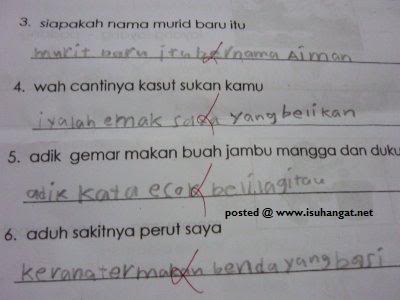 3. siapakah nama murid baru itu
murit baru itu bernama Aiman
4. wah cantinya kasut sukan kamu
iyalah emak saya yang belikan
5. adik gemar makan buah jambu mangga dan duku
adik kata esok beli lagi tau
posted @ www.isuhangat.net
6. aduh sakitnya perut saya
kerana termakan benda yang basi